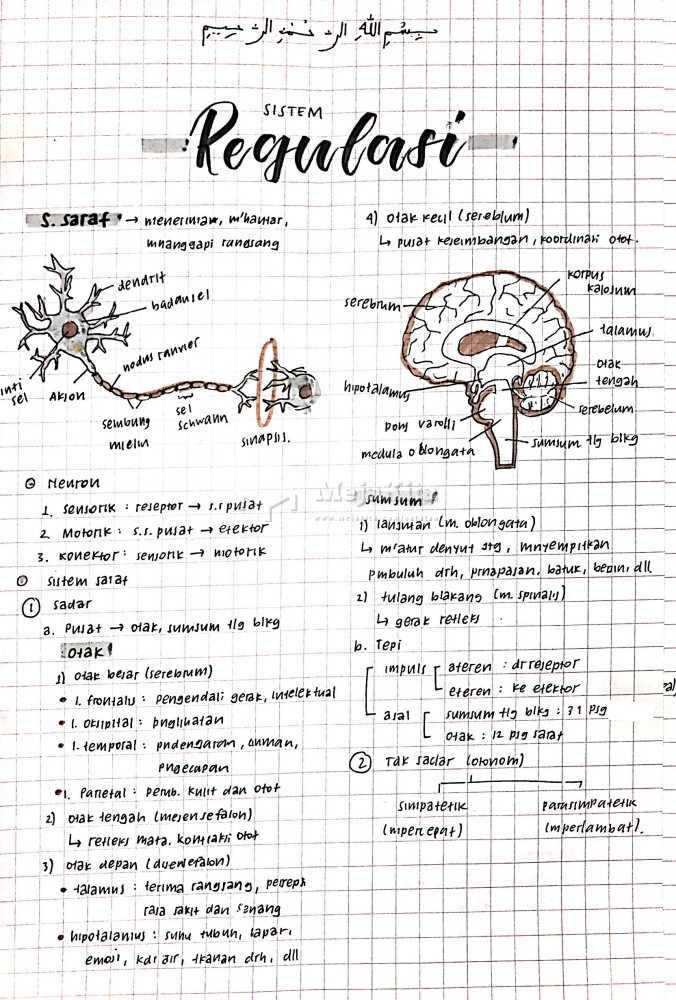 بسم الله الرحمن الرحيم
SISTEM
Regulasi
S. saraf → menerima, m'hantar,
mnanggapi rangsang
dendrit
badan sel
nodus ranvier
inti
sel
Akson
selubung
mielin
sel
schwann
sinapsis.
Neuron
1. sensorik : reseptor → s.s pusat
2. Motorik : s.s. pusat → efektor
3. konektor : sensorik → motorik
sistem saraf
1 sadar
a. Pusat → otak, sumsum tlg blkg
otak
1) otak besar (serebrum)
• l. frontalis : pengendali gerak, intelektual
• l. oksipital : pnglihatan
• l. temporal : pndengaran, ciuman,
pngecapan
• l. Parietal : perub. kulit dan otot
2) otak tengah (mesensefalon)
↳ refleks mata, kontraksi otot
3) otak depan (diensefalon)
• talamus : terima rangsang, persepsi
rasa sakit dan senang
• hipotalamus : suhu tubuh, lapar,
emosi, kdr air, tkanan drh, dll
4) otak kecil (sereblum)
↳ pusat keseimbangan, koordinasi otot.
korpus
kalosum
serebrum
talamus
otak
tengah
hipotalamus
serebelum
pons varolii
medula oblongata
sumsum tlg blkg
sumsum
1) lanjutan (m. oblongata)
↳ m'atur denyut jtg, mnyempitkan
pmbuluh drh, prnapasan, batuk, bersin, dll
2) tulang blakang (m. spinalis)
↳ gerak refleks
b. Tepi
impuls
aferen : dr reseptor
eferen : ke efektor
asal
sumsum tlg blkg : 31 psg
otak : 12 psg saraf
2 Tak sadar (otonom)
simpatetik
parasimpatetik
(mpercepat)
(mperlambat).
MejaKita